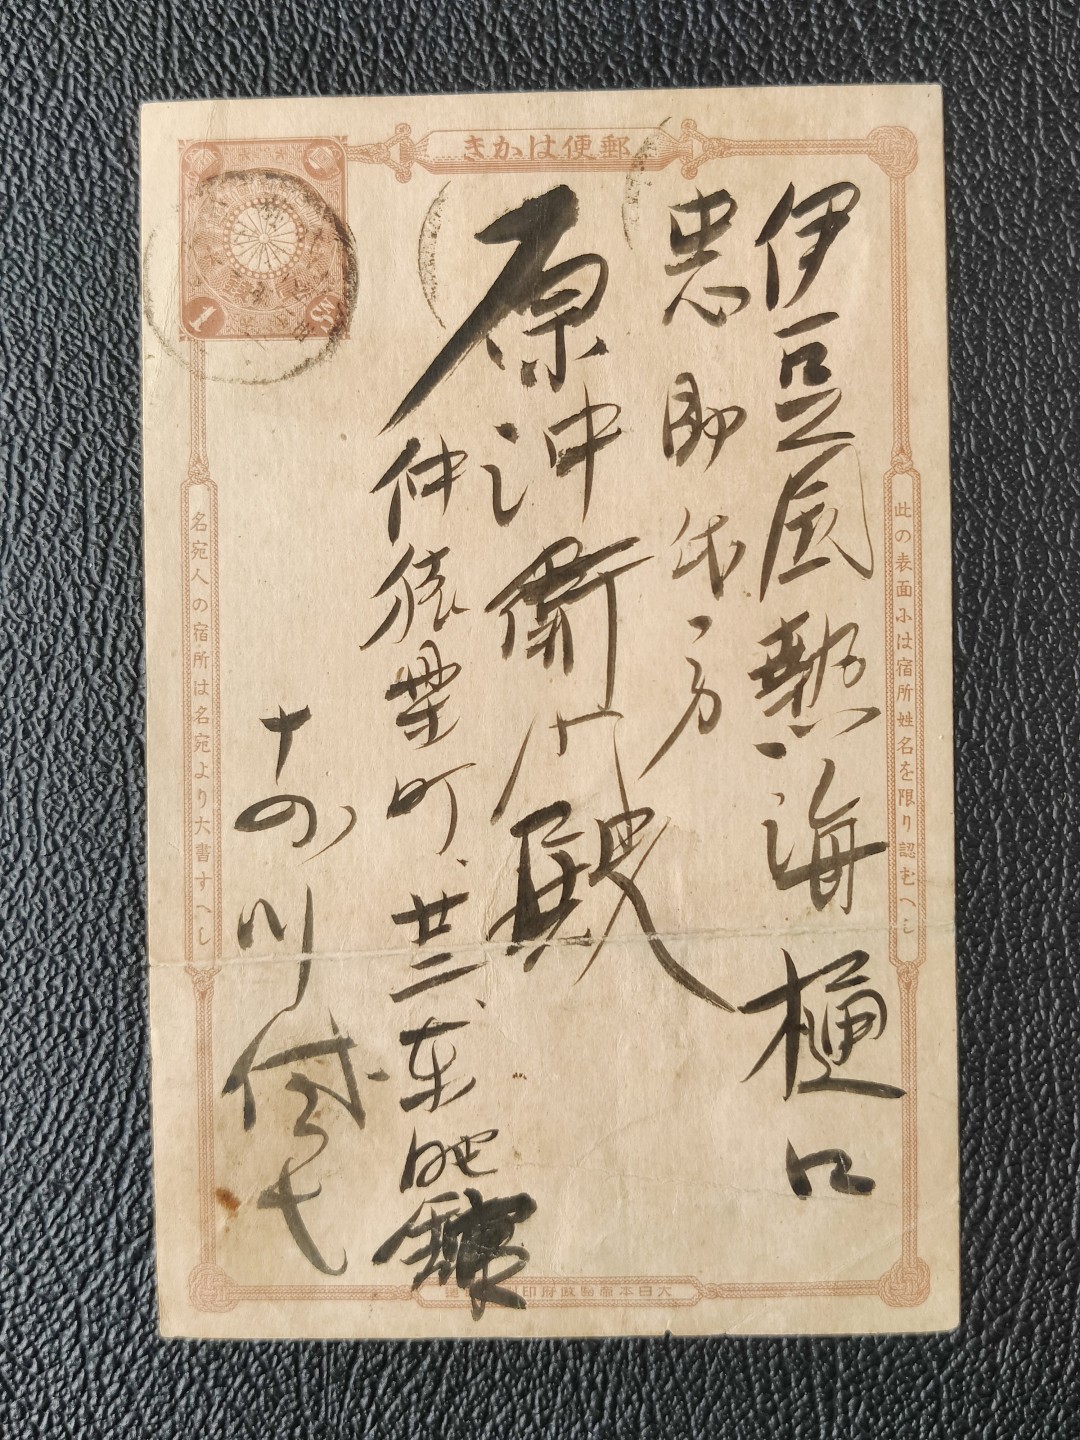 郵便はかき
伊豆国熱海樋口
忠助氏方
原沖衛門殿
仲猿楽町、廿三、東肥館
此の表面には宿所姓名を限り認むへし
名宛人の宿所は名宛より大書すへし
大日本帝国政府印刷局製造
1